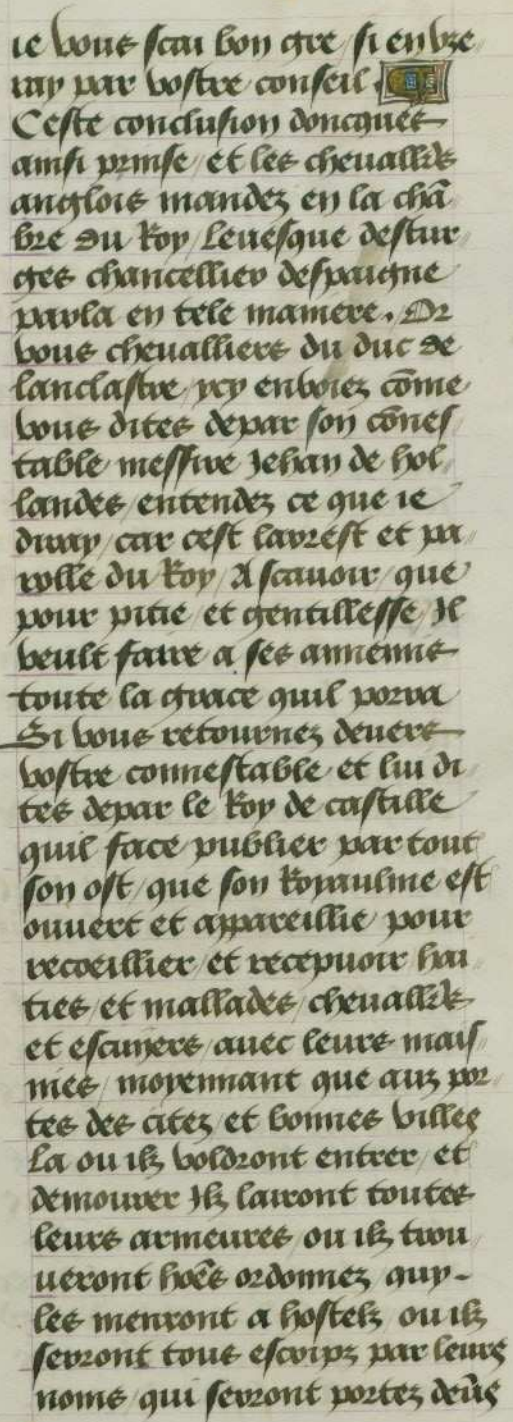 ie vous scai bon gre / si en vze
ray par vostre conseil.
Ceste conclusion doncques
ainsi prinse / et les cheuallrs
anglois mandez en la chã
bre du Roy / Leuesque destur
ges chancellier despaigne
parla en tele maniere. Or
vous cheualliers du duc de
lanclastre / ycy enuoiez cõme
vous dites depar son cõnes
table messire Jehan de hol
landes / entendez ce que ie
diray / car cest larrest et pa
rolle du Roy / A scauoir / que
pour pitie / et gentillesse / Il
veult faire a ses annemis
toute la grace quil porra
Si vous retournez deuers
vostre connestable / et lui di
tes depar le Roy de castille
quil face publier par tout
son ost / que son Royaulme est
ouuert et appareillie / pour
recoeillier / et recepuoir hai
ties / et mallades / cheuallrs
et escuiers / auec leurs mais
nies / moyennant que aux por
tes des citez / et bonnes villes
La ou ilz voldront entrer / et
demourer Ilz lairont toutes
leurs armeures / ou ilz trou
ueront hões ordonnez / quy
les menront a hostelz / ou ilz
serront tous escripz par leurs
noms / qui serront portez deũs